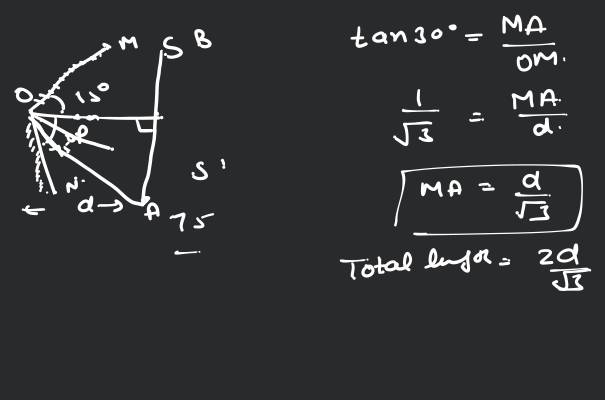 M
S B
O
15°
N.
d→
A
75
S'
tan30° = MA/OM.
1/√3 = MA./d.
MA = d/√3
Total = 2d/√3